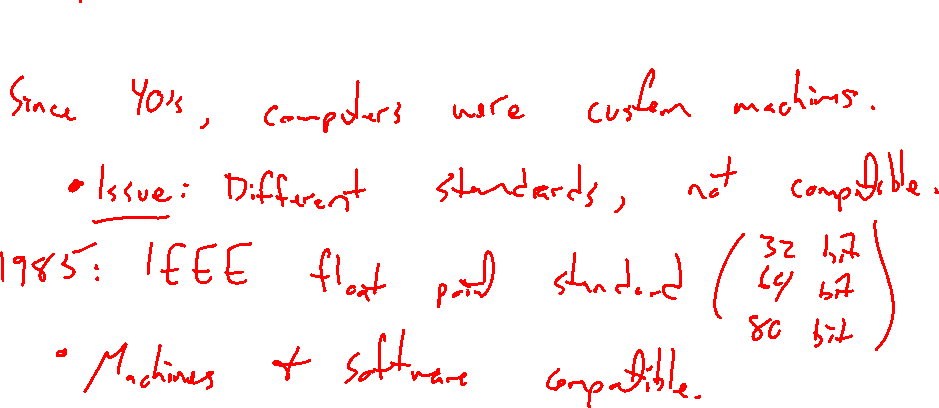 Since 40's, computers were custom machines.
• Issue: Different standards, not compatible.
1985: IEEE float point standard (32 bit
64 bit
80 bit)
• Machines + software compatible.